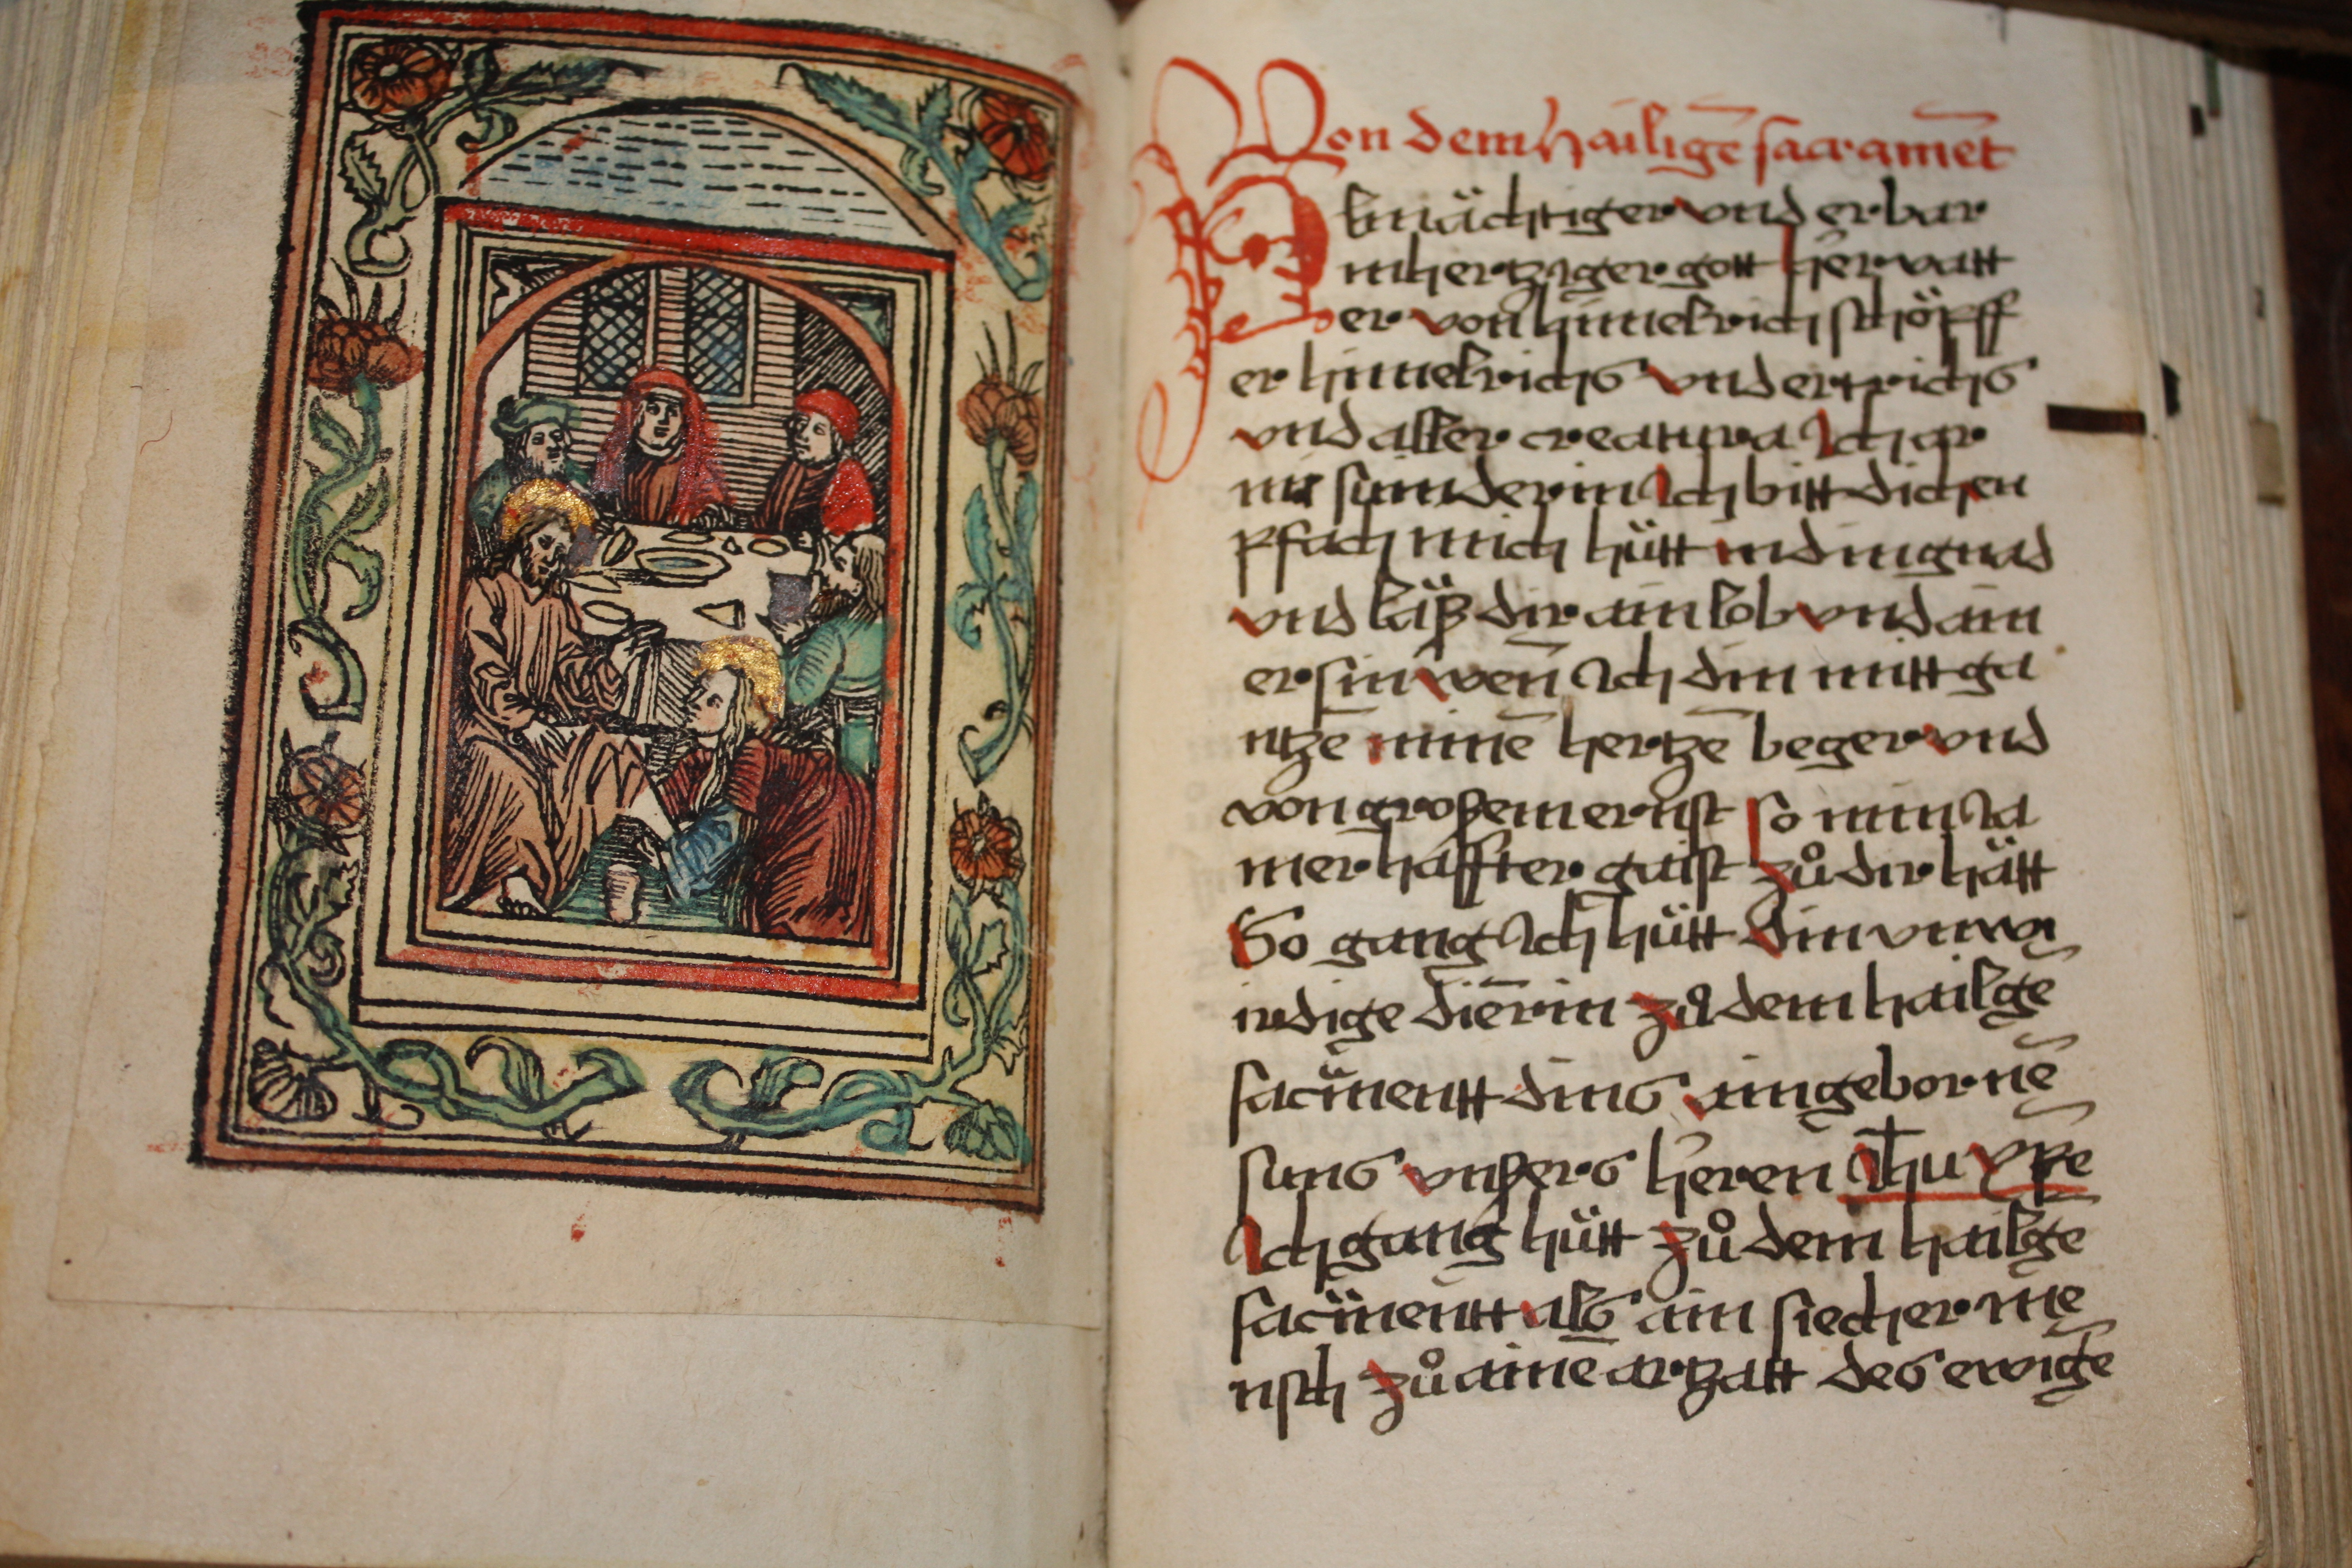 Von dem hailigē sacramēt
Almächtiger vnd erbar
mhertziger gott her vatt
er von himelrich schöpff
er himelrichs vnd ertrichs
vnd aller creatura Ich ar
mi sünderin Ich bitt dich en
pfach mich hütt in din gnad
vnd läß dir ain lob vnd ain
er sin wen̄ Ich din mitt ga
ntzē minē hertzē beger vnd
von großem ernst so min Ja
merhaffter gaist zů dir hätt
So gang Ich hütt din vnwi
rdige diērin zů dem hailgē
sacm̈entt dins aingebornē
suns vnßers heren Jhu xp̄e
Ich gang hütt zů dem hailgē
sacm̈entt als ain siecher mē
nsch zů ainē artzatt des ewigē